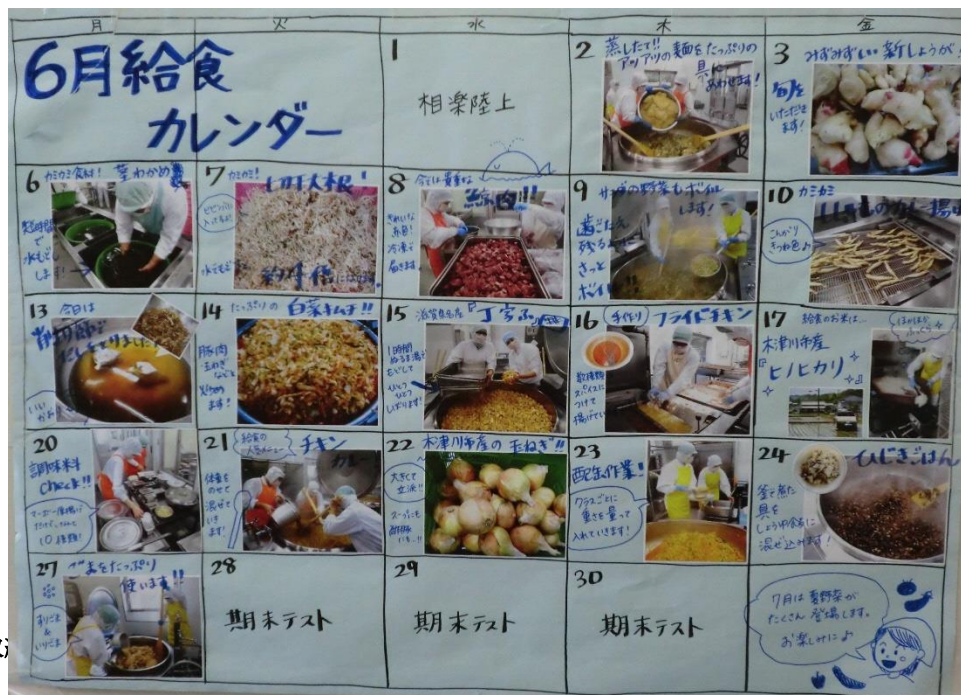 月 火 水 木 金
6月給食
カレンダー
1
相楽陸上
2
蒸したて!!
アツアツの麺をたっぷりの
具に
あわせます!
3
みずみずしい新しょうが!
旬を
いただき
ます!
6
カミカミ食材! 茎わかめ
短時間
で
水もどし
します!
7
カミカミ!
切干大根!
水でもどすと
約4倍になります
8
今では貴重な
鯨肉!!
きれいな
赤色!
冷凍で
届きます。
9
サラダの野菜もボイル
します!
歯ごたえ
残るように
さっと
ボイル!!
10
カミカミ
こんがり
きつね色♪
13
今日は
削り節で
だしをとりました!
いい
14
たっぷりの 白菜キムチ!!
豚肉
玉ねぎ
などと
炒め
ます!
15
滋賀県名産『丁字ふ』
1時間
ぬるま湯で
もどして
ひとつ
ひとつ
しぼります!
16
手作り フライドチキン
スパイスに
つけて
揚げてい
17
給食のお米は…
木津川市産
『ヒノヒカリ』
20
調味料
Check!!
10種類!
21
給食の
人気メニュー
チキン
カレー
体重を
のせて
混ぜて
いき
ます!
22
木津川市産の 玉ねぎ!!
大きくて
立派!!
スープにも
23
配缶作業!
クラスごとに
重さを量って
入れていきます!
24
ひじきごはん
釜で煮た
具を
しょうゆ食缶に
混ぜ込みます!
27
ごまをたっぷり
使います!!
すりごま
&
いりごま
28
期末テスト
29
期末テスト
30
期末テスト
7月は夏野菜が
たくさん登場します。
お楽しみに♪